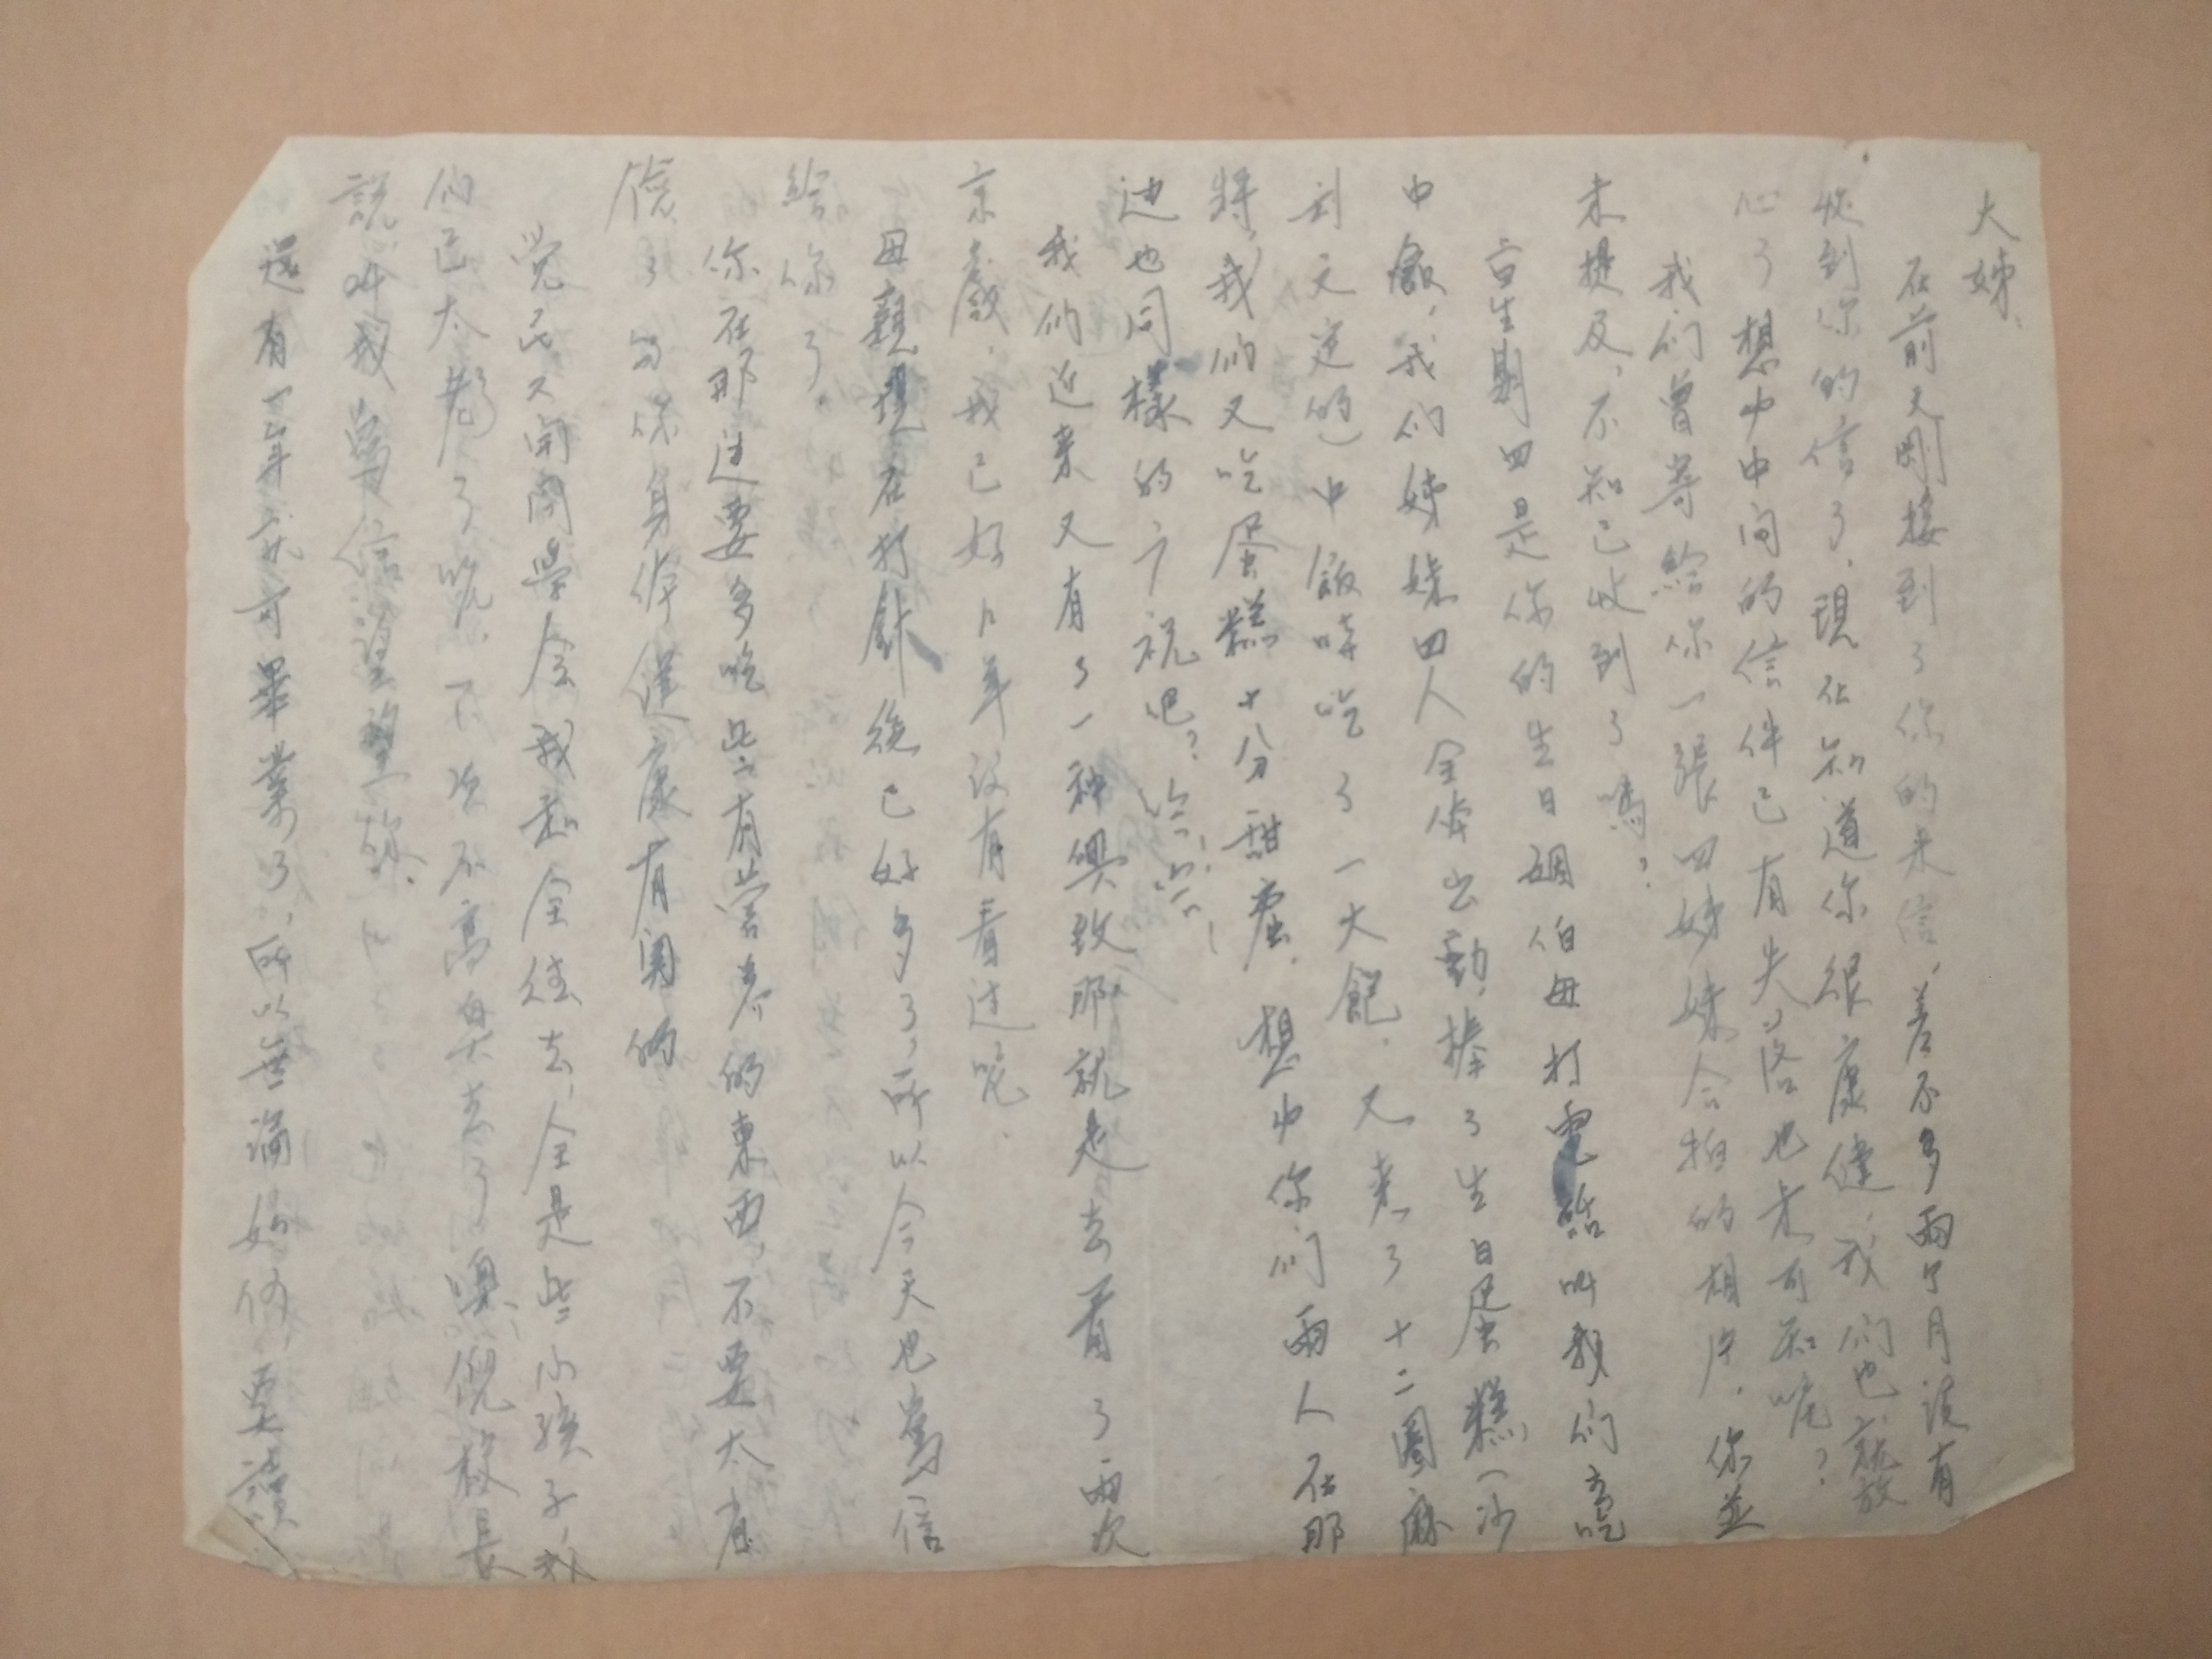 大姊、
在前天剛接到了你的來信，差不多兩個月沒有
收到你的信了，現在知道你很康健，我們也就放
心了想中中间的信件已有失落也未可知呢？
我们曾寄給你一張四姊妹合拍的相片，你並
未提及，不知已收到了嗎？
四是你的生日 伯母打電話叫我们去吃
中飯，我们姊妹四人全体出動，捧了生日蛋糕（沙
利文定的）中飯時吃了一大飽，又來了十二圈麻
將，我们又吃蛋糕十分甜蜜，想中你们兩人在那
边也同樣的 祝吧？哈哈！
我们近來又有了一种興致那就是去看了兩次
京戲，我已好几年没有看过呢、
母親現在打針後已好多了，所以今天也寫信
給你了。
你在那边要多吃些有营养的東西，不要太省
儉了 与你身体健康有関的
覺民又開同學会我和全往去，全是些小孩子，我
们已太老了呢，下次不高興去了噢，倪校長
說，叫我寫信望望你、
還有一年就可畢業了，所以無論如何，要讀